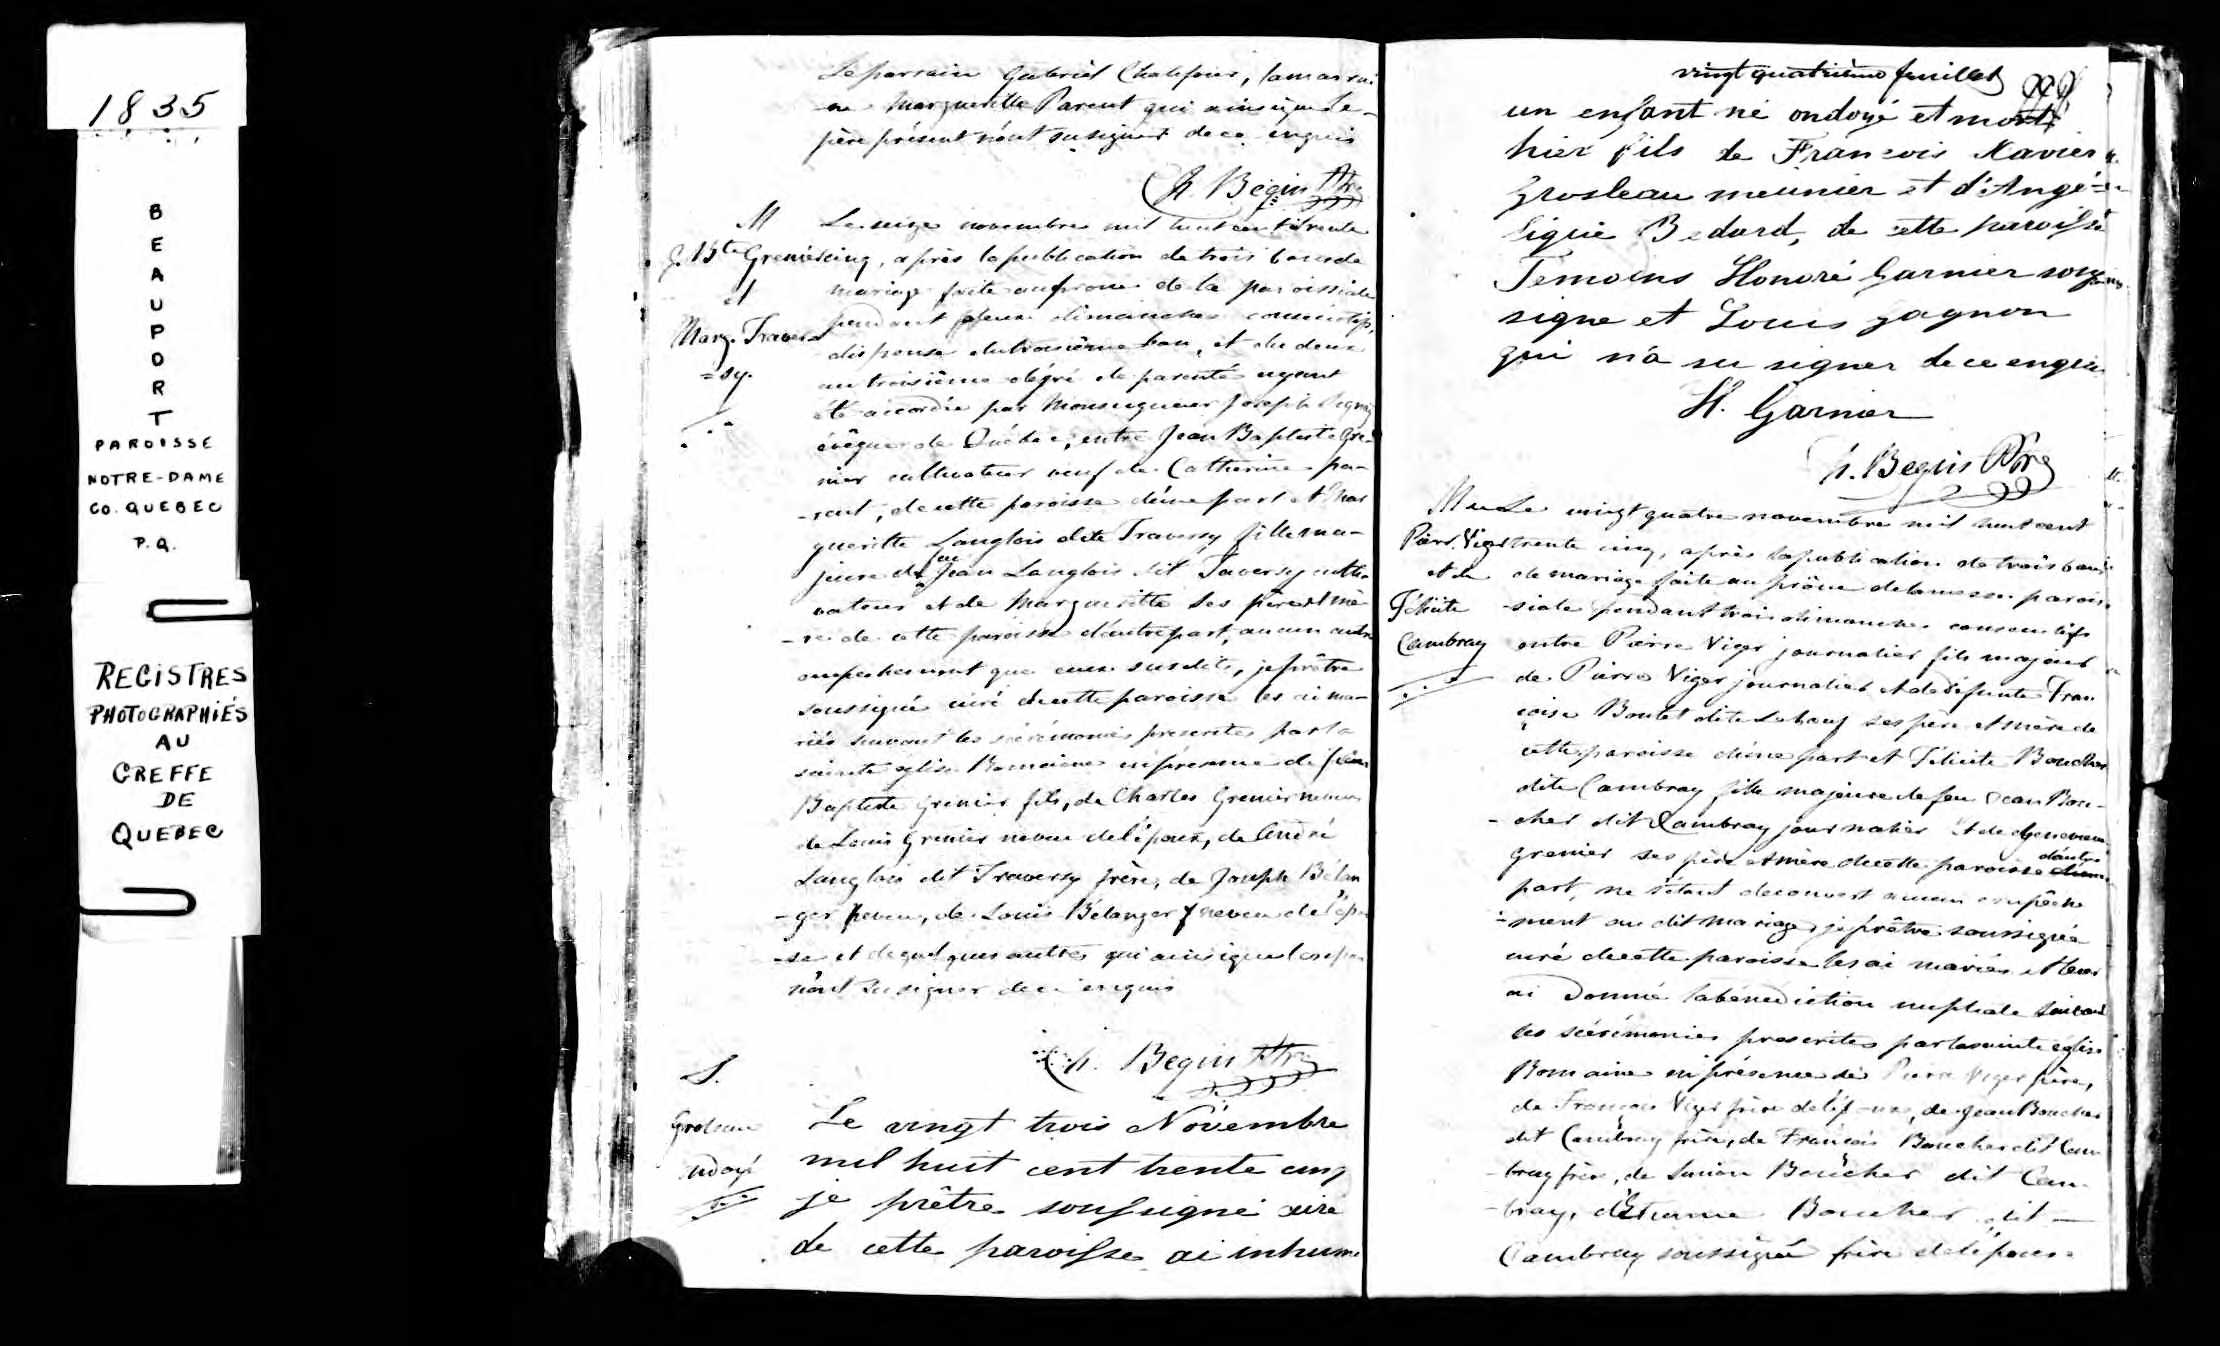 1835
BEAUPORT
PAROISSE
NOTRE-DAME
CO. QUEBEC
P.Q.
REGISTRES
PHOTOGRAPHIÉS
AU
GREFFE
DE
QUEBEC
Le parrain Gabriel Chalifour, la marrai
-ne Marguerite Parent qui ainsi que le
père présent n'ont su signer de ce enquis
h. Begin Ptre
M
J. Bte Grenier
et
Marg. Travers
=sy.
Le seize novembre mil huit cent trente
cinq, après la publication de trois bans de
mariage faite au prone de la paroissiale
pendant deux dimanches consécutifs,
dispense du troisième ban, et du deux
au troisième dégré de parenté ayant
été accordée par Monseigneur Joseph Signay
évêque de Québec, entre Jean Baptiste Gre-
nier cultivateur veuf de Catherine pa-
-rent, de cette paroisse d'une part et Mar
gueritte Langlois dite Traversy fille ma-
jeure de feu Jean Langlois dit Traversy culti
vateur et de Margueritte ses père et mè
-re de cette paroisse d'autre part, aucun autre
empechement que ceux susdits, je prêtre
soussigné curé de cette paroisse les ai ma-
riés suivant les scérémonies prescrites par la
sainte eglise Romaine en présence de Jean
Baptiste Grenier fils, de Charles Grenier neveu
de Louis Grenier neveu de l'époux, de André
Langlois dit Traversy frère, de Joseph Bélan
-ger neveu, de Louis Bélanger neveu de l'épou
-se et de quelques autres qui ainsi que les epoux
n'ont su signer de ce enquis
h. Begin Ptre
S.
Groleau
ondoyé
Le vingt trois Novembre
mil huit cent trente cinq
je prêtre soussigné curé
de cette paroisse ai inhumé
vingt quatrième feuillet
un enfant né ondoyé et mort
hier fils de François Xavier
Grosleau meunier et d'Angé=
lique Bedard, de cette paroisse
Temoins Honoré Garnier sous
signé et Louis gagnon
qui n'a su signer de ce enquis
H. Garnier
h. Begin Ptre
M
Pierre Viger
et de
Félicité
Cambray
Le vingt quatre novembre mil huit cent
trente cinq, après la publication de trois bans
de mariage faite au prône de la messe parois
-siale pendant trois dimanches consecutifs
entre Pierre Viger journalier fils majeur
de Pierre Viger journalier et de défunte Fran
çoise Boutet dite Lebœuf ses père et mère de
cette paroisse d'une part et Félicité Boucher
dite Cambray fille majeure de feu Jean Bou-
-cher dit Cambray journalier et de Genevieve
Grenier ses père et mère de cette paroisse d'autre
part, ne s'étant decouvert aucun empêche
=ment au dit mariage je prêtre soussigné
curé de cette paroisse les ai mariés et leur
ai donné la bénédiction nuptiale suivant
les scérémonies prescrites par la sainte église
Romaine en présence de Pierre Viger père,
de François Viger frère de l'époux, de Jean Boucher
dit Cambray frère, de François Boucher dit Cam
-bray frère, de Simon Boucher dit Cam-
-bray, d'Etienne Boucher dit
Cambray soussigné frère de l'épouse